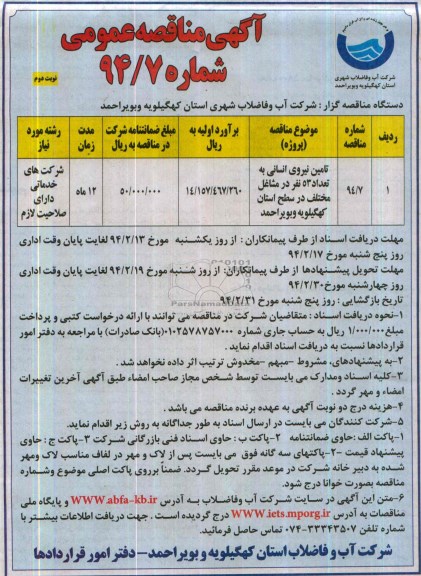 آگهی مناقصه عمومی
شماره ۹۴/۷
نوبت دوم
شرکت آب وفاضلاب شهری
استان کهگیلویه وبویراحمد
دستگاه مناقصه گزار : شرکت آب وفاضلاب شهری استان کهگیلویه وبویراحمد
ردیف
شماره مناقصه
موضوع مناقصه (پروژه)
برآورد اولیه به ریال
مبلغ ضمانتنامه شرکت در مناقصه به ریال
مدت زمان
رشته مورد نیاز
۱
۹۴/۷
تامین نیروی انسانی به تعداد۵۳ نفر در مشاغل مختلف در سطح استان کهگیلویه وبویراحمد
۱۴/۱۵۷/۴۶۷/۲۶۰
۵۰/۰۰۰/۰۰۰
۱۲ ماه
شرکت های خدماتی دارای صلاحیت لازم
مهلت دریافت اسناد از طرف پیمانکاران : از روز یکشنبه مورخ ۹۴/۲/۱۳ لغایت پایان وقت اداری
روز پنج شنبه مورخ ۹۴/۲/۱۷
مهلت تحویل پیشنهادها از طرف پیمانکاران: از روز شنبه مورخ ۹۴/۲/۱۹ لغایت پایان وقت اداری
روز چهارشنبه مورخ۹۴/۲/۳۰
تاریخ بازگشایی : روز پنج شنبه مورخ ۹۴/۲/۳۱
۱-نحوه دریافت اسناد : متقاضیان شرکت در مناقصه می توانند با ارائه درخواست کتبی و پرداخت
مبلغ۱/۰۰۰/۰۰۰ ریال به حساب جاری شماره ۰۱۰۲۵۷۸۷۵۷۰۰۰ (بانک صادرات) با مراجعه به دفتر امور
قراردادها نسبت به دریافت اسناد اقدام نماید .
۲-به پیشنهادهای، مشروط -مبهم -مخدوش ترتیب اثر داده نخواهد شد .
۳-کلیه اسناد ومدارک می بایست توسط شخص مجاز صاحب امضاء طبق آگهی آخرین تغییرات
امضاء و مهر گردد .
۴-هزینه درج دو نوبت آگهی به عهده برنده مناقصه می باشد .
۵-شرکت کنندگان می بایست در ارسال اسناد به طور جداگانه به روش زیر اقدام نماید.
۱-پاکت الف :حاوی ضمانتنامه ۲-پاکت ب : حاوی اسناد فنی بازرگانی شرکت ۳-پاکت ج : حاوی
پیشنهاد قیمت -۲-پاکتهای سه گانه فوق می بایست پس از لاک و مهر در لفاف مناسب لاک ومهر
شده به دبیر خانه شرکت در موعد مقرر تحویل گردد. ضمناً برروی پاکت اصلی موضوع وشماره
مناقصه بصورت خوانا درج شود.
۶-متن این آگهی در سایت شرکت آب وفاضلاب به آدرس WWW.abfa-kb.ir و پایگاه ملی
مناقصات به آدرس WWW.iets.mporg.ir درج گردیده است . جهت دریافت اطلاعات بیشتر با
شماره تلفن ۳۳۳۴۳۵۰۷-۰۷۴ تماس حاصل فرمائید.
شرکت آب و فاضلاب استان کهگیلویه و بویر احمد – دفتر امور قراردادها